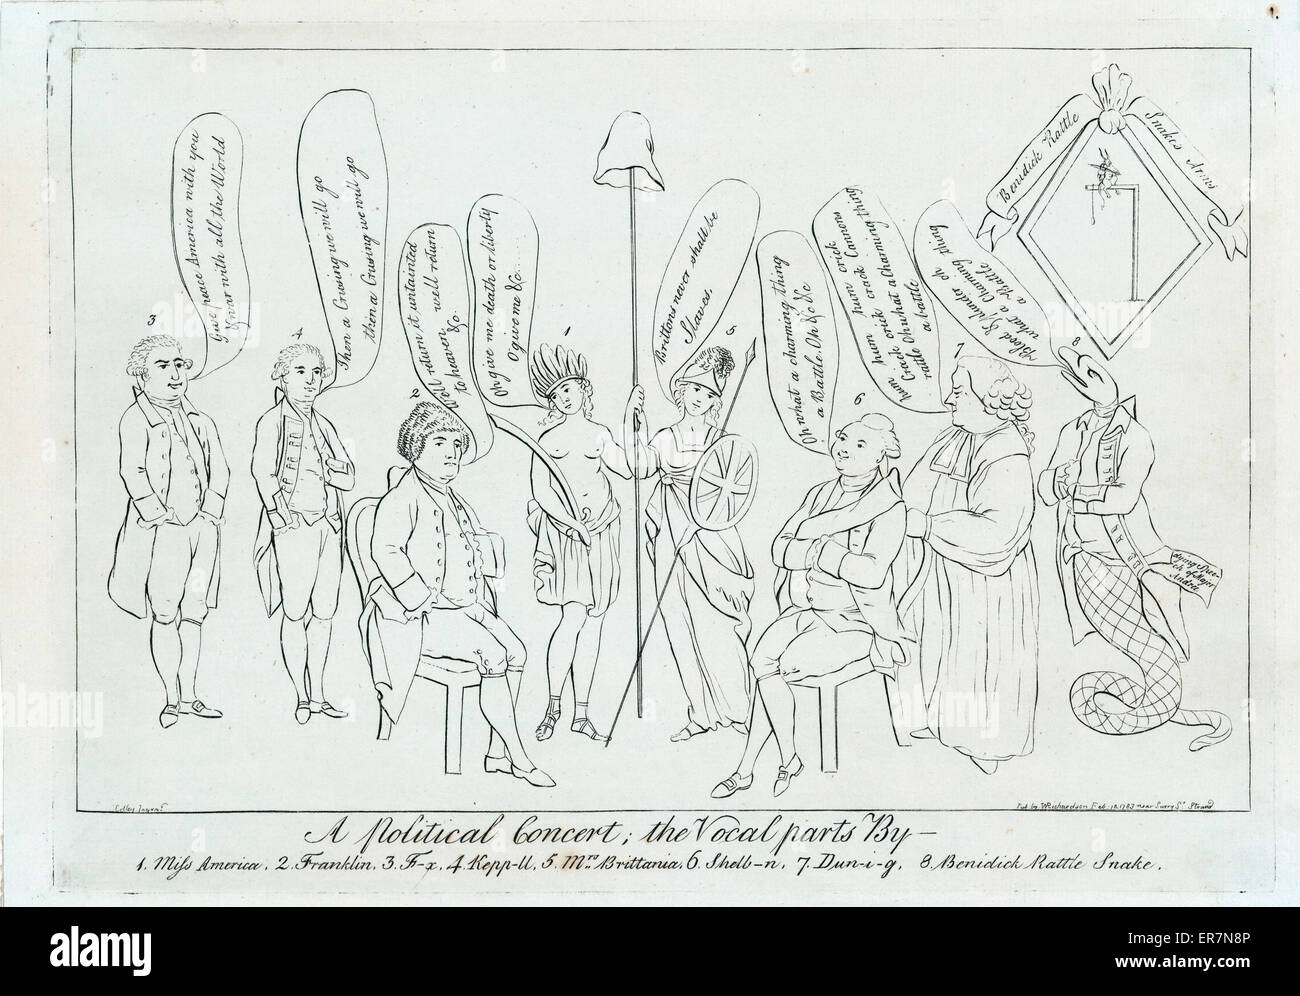 3
Give peace America with you
& war with all the World
4
Then a Crusing we will go
then a Crusing we will go
2
Well return, it untainted
to heaven, well return
&c.
Oh give me death or liberty
O give me &c
1
Brittons never shall be
Slaves,
5
Oh what a charming thing
a Battle, Oh &c &c
6
hum hum hum crick
hum, hum crack Cannons
Crick crick crack
rattle Oh what a Charming thing
a battle
7
Blood & Plunder oh
what a Charming thing
a Battle
8
Benidick Rattle
Snake's Arms
dying Spee-
ch of Major
André
Pub by W Richardson Feb. 18. 1783 near Surry St. Strand
A Political Concert; the Vocal parts By—
1. Miss America, 2. Franklin, 3. F-x, 4. Kepp-ll, 5. Mrs Brittania, 6. Shelb-n, 7. Dun-i-g, 8. Benidick Rattle Snake.
alamy
Image ID: ER7N8P
www.alamy.com